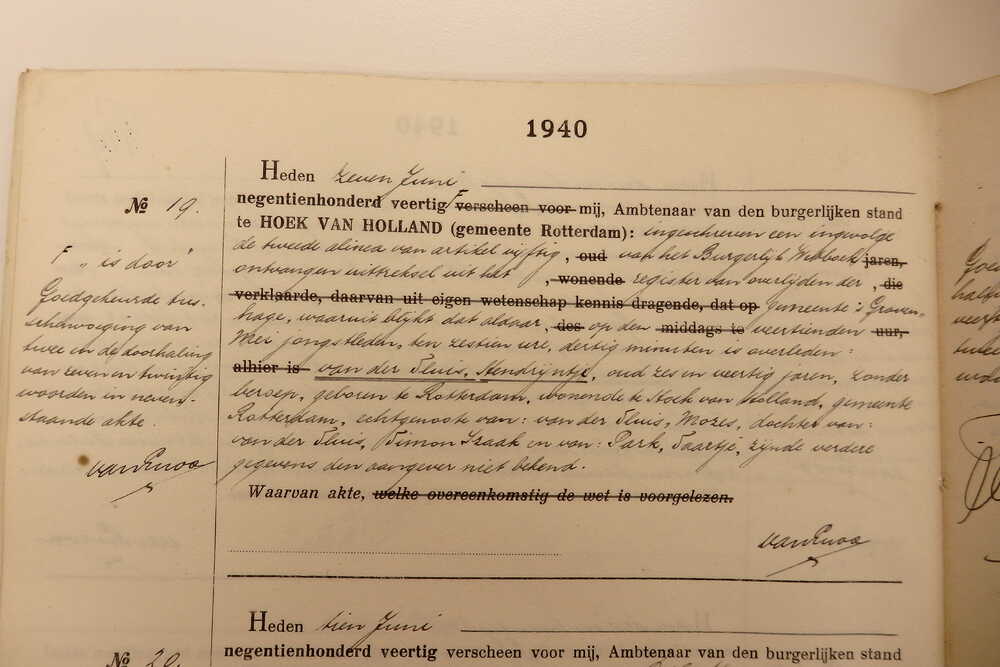 1940
Heden zeven Juni
№ 19.
negentienhonderd veertig ⌐ verscheen voor mij, Ambtenaar van den burgerlijken stand
te HOEK VAN HOLLAND (gemeente Rotterdam): ingeschreven een ingevolge
de tweede alinea van artikel vijftig, oud van het Burgerlijk Wetboek jaren,
ontvangen uittreksel uit het , wonende register van overlijden der , die
verklaarde, daarvan uit eigen wetenschap kennis dragende, dat op gemeente 's Graven-
hage, waaruit blijkt dat aldaar, des op den middags te veertienden uur,
Mei jongstleden, ten zestien ure, dertig minuten is overleden:
alhier is van der Sluis, Hendrijntje, oud zes en veertig jaren, zonder
beroep, geboren te Rotterdam, wonende te Hoek van Holland, gemeente
Rotterdam, echtgenoote van: van der Sluis, Mozes, dochter van:
van der Sluis, Simon Izaak en van: Park, Saartje, zijnde verdere
gegevens den aangever niet bekend.
Waarvan akte, welke overeenkomstig de wet is voorgelezen.
⌐ „is door"
Goedgekeurde bij-
schrijving van
twee en de doorhaling
van zeven en twintig
woorden in neven-
staande akte.
Heden tien Juni
№ 20.
negentienhonderd veertig verscheen voor mij, Ambtenaar van den burgerlijken stand